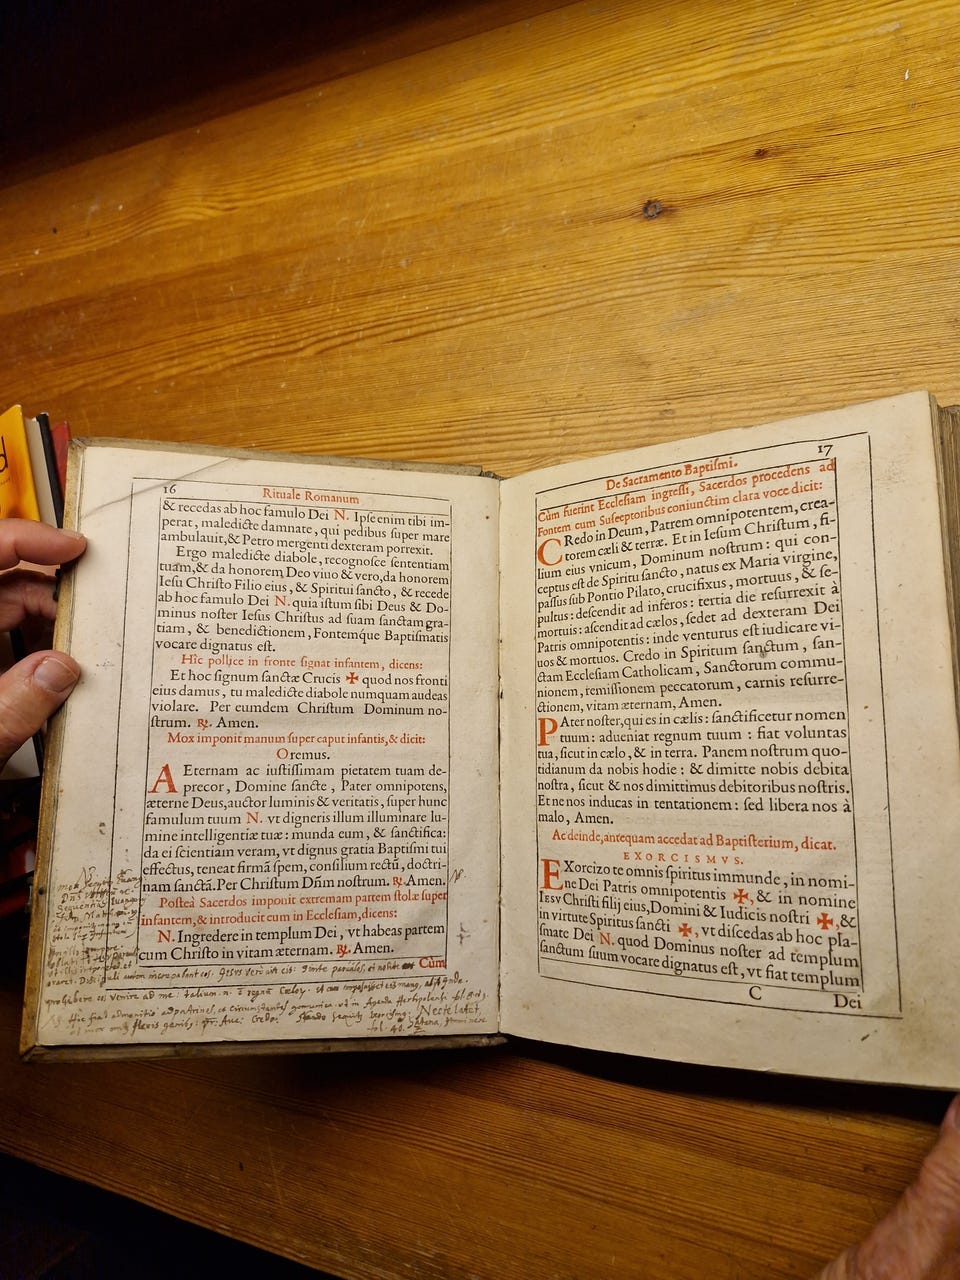 d
16
Rituale Romanum
& recedas ab hoc famulo Dei N. Ipse enim tibi im-
perat, maledicte damnate, qui pedibus super mare
ambulauit, & Petro mergenti dexteram porrexit.
Ergo maledicte diabole, recognosce sententiam
tuam, & da honorem Deo viuo & vero, da honorem
Iesu Christo Filio eius, & Spiritui sancto, & recede
ab hoc famulo Dei N. quia istum sibi Deus & Do-
minus noster Iesus Christus ad suam sanctam gra-
tiam, & benedictionem, Fontemque Baptismatis
vocare dignatus est.
Hîc pollice in fronte signat infantem, dicens:
Et hoc signum sanctæ Crucis ✠ quod nos fronti
eius damus, tu maledicte diabole numquam audeas
violare. Per eumdem Christum Dominum no-
strum. ℟. Amen.
Mox imponit manum super caput infantis, & dicit:
Oremus.
AEternam ac iustissimam pietatem tuam de-
precor, Domine sancte, Pater omnipotens,
æterne Deus, auctor luminis & veritatis, super hunc
famulum tuum N. vt digneris illum illuminare lu-
mine intelligentiæ tuæ: munda eum, & sanctifica:
da ei scientiam veram, vt dignus gratia Baptismi tui
effectus, teneat firmã spem, consilium rectũ, doctri-
nam sanctã. Per Christum Dñm nostrum. ℟. Amen.
Posteà Sacerdos imponit extremam partem stolæ super
infantem, & introducit eum in Ecclesiam, dicens:
N. Ingredere in templum Dei, vt habeas partem
cum Christo in vitam æternam. ℟. Amen.
Cùm
17
De Sacramento Baptismi.
Cùm fuerint Ecclesiam ingressi, Sacerdos procedens ad
Fontem cum Susceptoribus coniunctim clara voce dicit:
CRedo in Deum, Patrem omnipotentem, crea-
torem cæli & terræ. Et in Iesum Christum, fi-
lium eius vnicum, Dominum nostrum: qui con-
ceptus est de Spiritu sancto, natus ex Maria virgine,
passus sub Pontio Pilato, crucifixus, mortuus, & se-
pultus: descendit ad inferos: tertia die resurrexit à
mortuis: ascendit ad cælos, sedet ad dexteram Dei
Patris omnipotentis: inde venturus est iudicare vi-
uos & mortuos. Credo in Spiritum sanctum, san-
ctam Ecclesiam Catholicam, Sanctorum commu-
nionem, remissionem peccatorum, carnis resurre-
ctionem, vitam æternam, Amen.
PAter noster, qui es in cælis: sanctificetur nomen
tuum: adueniat regnum tuum: fiat voluntas
tua, sicut in cælo, & in terra. Panem nostrum quo-
tidianum da nobis hodie: & dimitte nobis debita
nostra, sicut & nos dimittimus debitoribus nostris.
Et ne nos inducas in tentationem: sed libera nos à
malo, Amen.
Ac deinde, antequam accedat ad Baptisterium, dicat.
EXORCISMVS.
EXorcizo te omnis spiritus immunde, in nomi-
ne Dei Patris omnipotentis ✠, & in nomine
Iesv Christi filij eius, Domini & Iudicis nostri ✠, &
in virtute Spiritus sancti ✠, vt discedas ab hoc pla-
smate Dei N. quod Dominus noster ad templum
sanctum suum vocare dignatus est, vt fiat templum
C
Dei